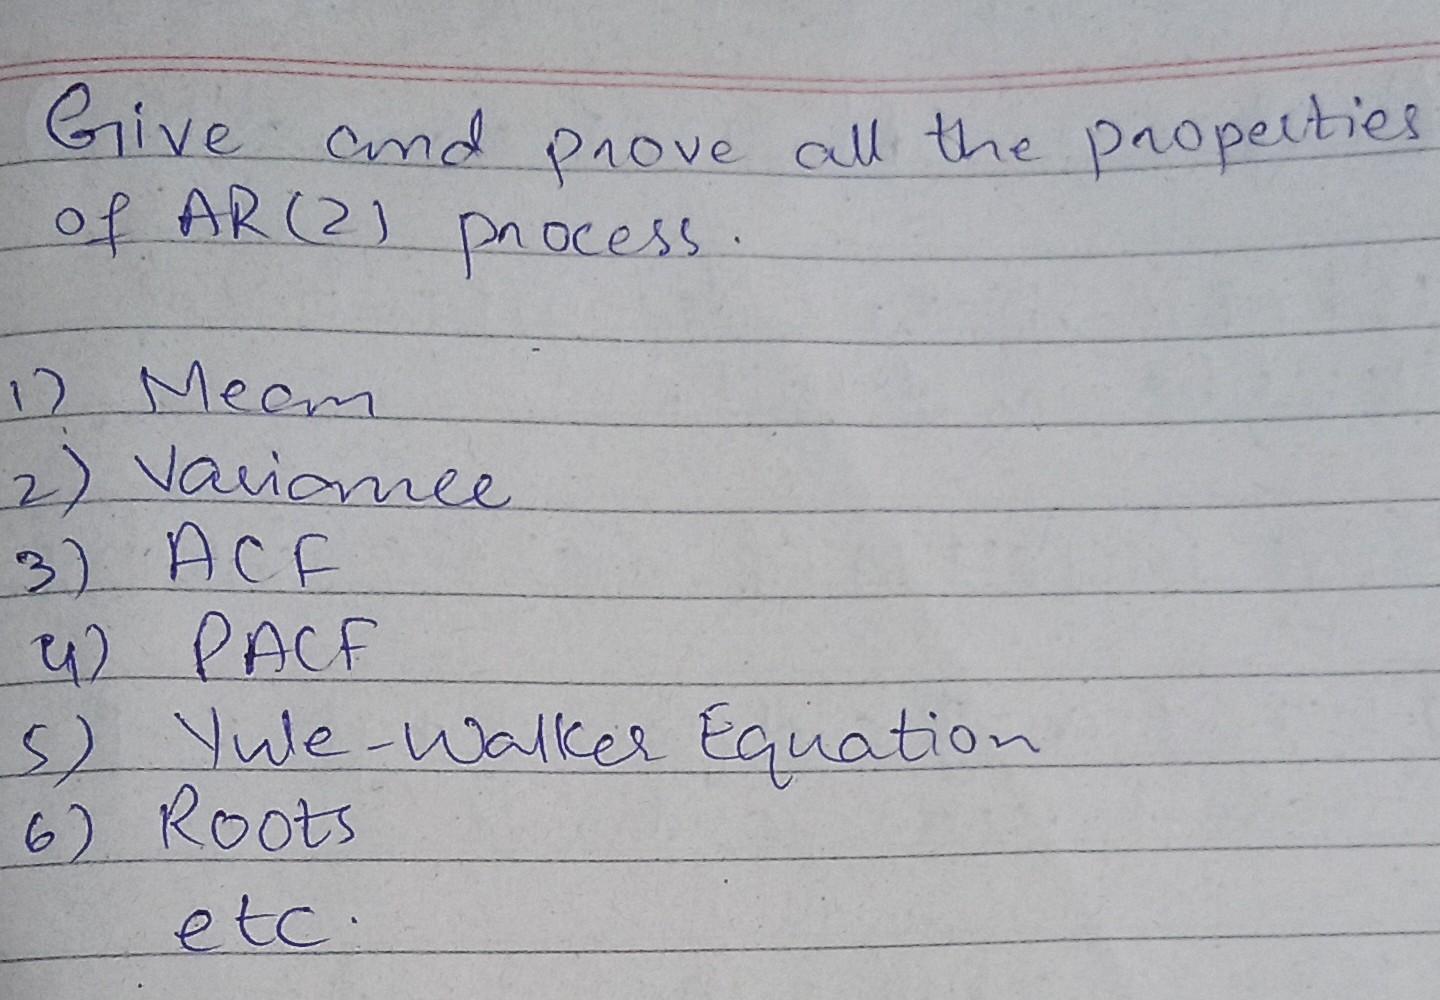 Give and prove all the properties
of AR(2) process.
1) Mean
2) Variance
3) ACF
4) PACF
5) Yule-Walker Equation
6) Roots
etc.